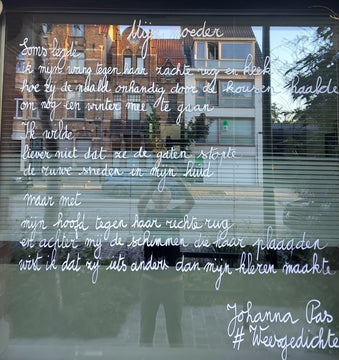 Mijn moeder
Soms legde
ik mijn wang tegen haar zachte rug en keek
hoe zij de naald onhandig door de kousen haalde
om nog een winter mee te gaan
Ik wilde
liever niet dat ze de gaten stopte
de ruwe sneden in mijn huid
maar met
mijn hoofd tegen haar rechte rug
en achter mij de schimmen die haar plaagden
wist ik dat zij iets anders dan mijn kleren maakte
Johanna Pas
#Weesgedichte